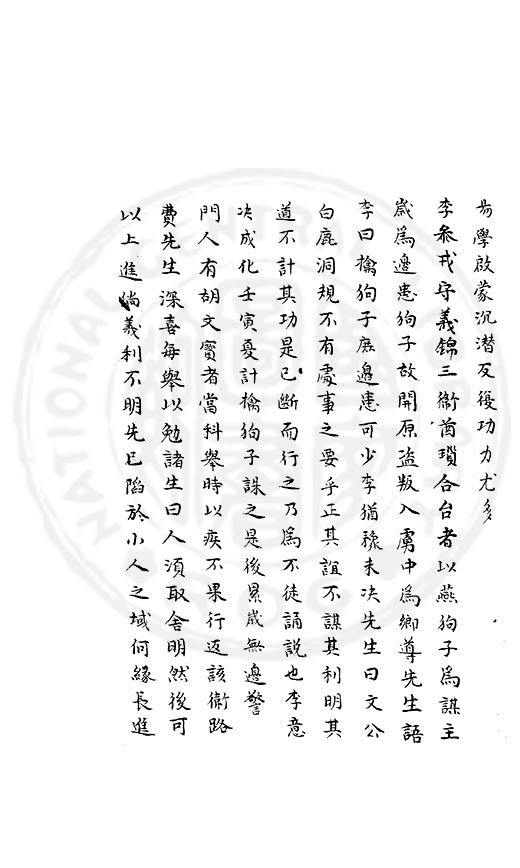 易學啟蒙沉潛反復功力尤多
李叅戎守義錦三衛酋瑣合台者以燕狗子爲謀主
歲爲邊患狗子故開原盗叛入虜中爲鄉導先生語
李曰擒狗子庶邉患可少李猶豫未决先生曰文公
白鹿洞規不有處事之要乎正其誼不謀其利明其
道不計其功是已斷而行之乃爲不徒誦説也李意
决成化壬寅憂計擒狗子誅之是後累歲無邊警
門人有胡文寳者當科舉時以疾不果行返該衛路
費先生深喜每舉以勉諸生曰人湏取舍明然後可
以上進倘義利不明先已陷於小人之域何緣長進
NATIONAL CENTRAL